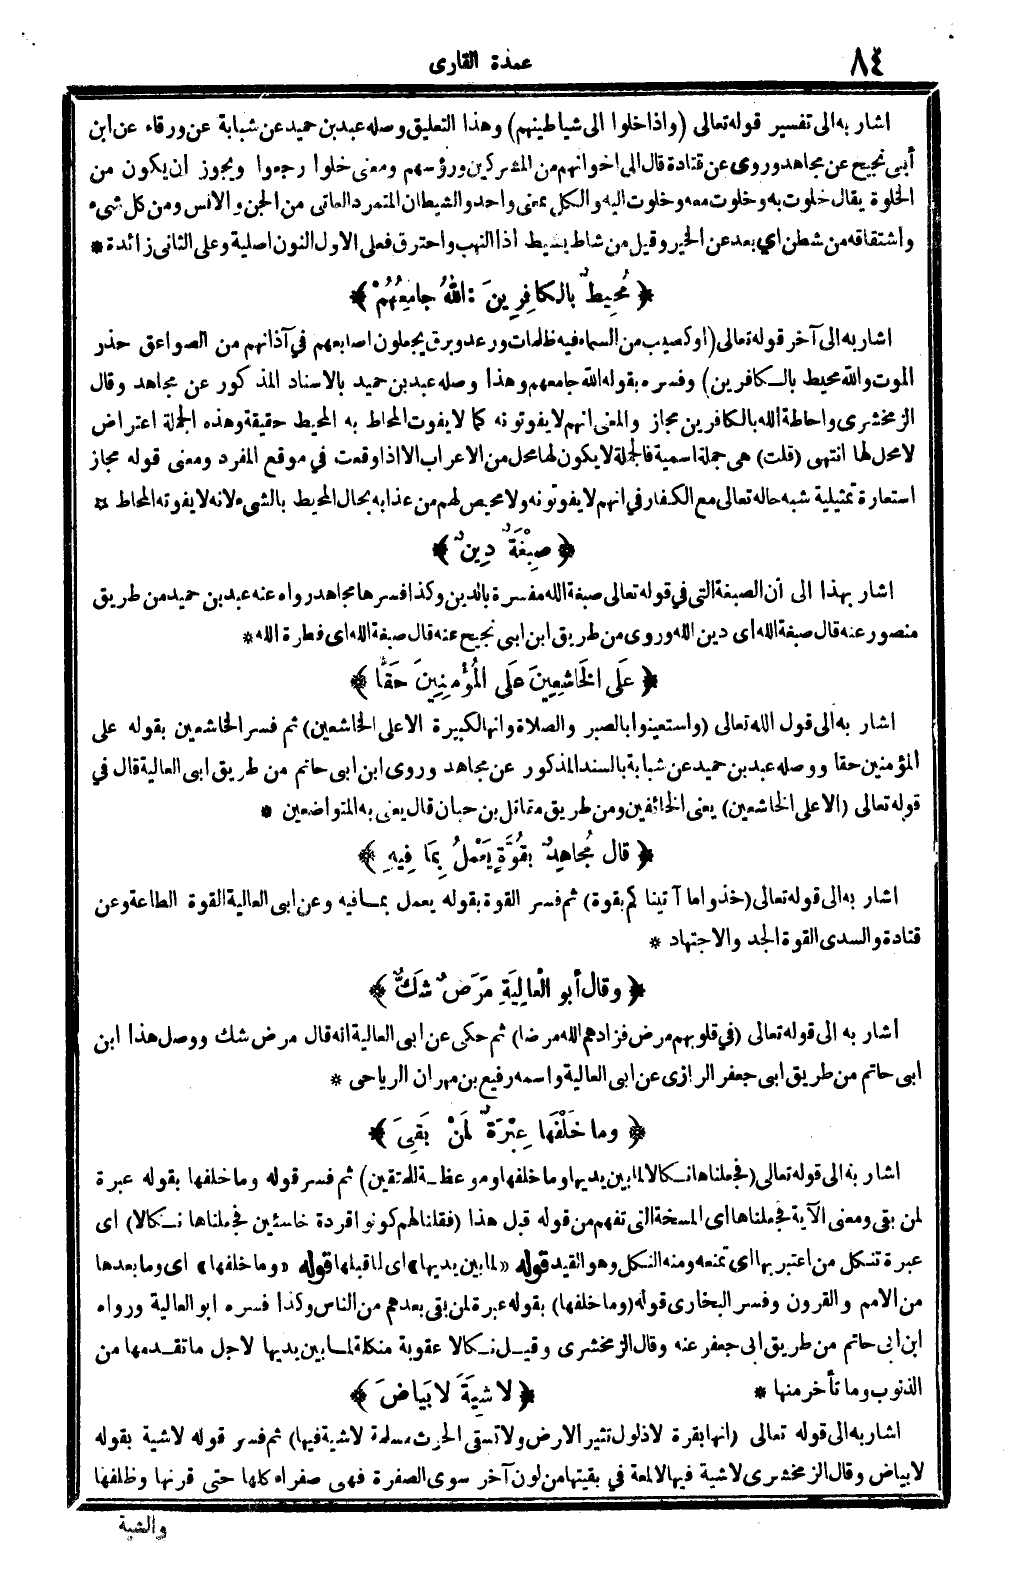 ٨٤
عمدة القارى
اشار به الى تفسير قوله تعالى (واذا خلوا الى شياطينهم) وهذا التعليق وصله عبد بن حميد عن شبابة عن ورقاء عن ابن
أبى نجيح عن مجاهد وروى عن قتادة قال الى اخوانهم من المشركين ورؤسهم ومعنى خلوا رجعوا ويجوز ان يكون من
الخلوة يقال خلوت به وخلوت معه وخلوت اليه والكل بمعنى واحد والشيطان المتمرد العاتى من الجن والانس ومن كل شىء
واشتقاقه من شطن اي بعد عن الخير وقيل من شاط يشيط اذا التهب واحترق فعلى الاول النون اصلية وعلى الثانى زائدة *
﴿ مُحِيطٌ بالكافِرِينَ : اللهُ جامِعُهُمْ ﴾
اشار به الى آخر قوله تعالى (او كصيب من السماء فيه ظلمات ورعد وبرق يجعلون اصابعهم في آذانهم من الصواعق حذر
الموت والله محيط بالكافرين) وفسره بقوله الله جامعهم وهذا وصله عبد بن حميد بالاسناد المذكور عن مجاهد وقال
الزمخشرى واحاطة الله بالكافرين مجاز والمعنى انهم لا يفوتونه كما لا يفوت المحاط به المحيط حقيقة وهذه الجملة اعتراض
لا محل لها انتهى (قلت) هى جملة اسمية فالجملة لا يكون لها محل من الاعراب الا اذا وقعت في موقع المفرد ومعنى قوله مجاز
استعارة تمثيلية شبه حاله تعالى مع الكفار في انهم لا يفوتونه ولا محيص لهم من عذابه بحال المحيط بالشىء لانه لا يفوته المحاط *
﴿ صِبْغَةٌ دِينٌ ﴾
اشار بهذا الى أن الصبغة التى في قوله تعالى صبغة الله مفسرة بالدين وكذا فسرها مجاهد رواه عنه عبد بن حميد من طريق
منصور عنه قال صبغة الله اى دين الله وروى من طريق ابن ابى نجيح عنه قال صبغة الله اى فطرة الله *
﴿ عَلَى الخَاشِعِينَ عَلَى المُؤْمِنِينَ حَقًّا ﴾
اشار به الى قول الله تعالى (واستعينوا بالصبر والصلاة وانها لكبيرة الا على الخاشعين) ثم فسر الخاشعين بقوله على
المؤمنين حقا ووصله عبد بن حميد عن شبابة بالسند المذكور عن مجاهد وروى ابن ابى حاتم من طريق ابى العالية قال في
قوله تعالى (الا على الخاشعين) يعنى الخائفين ومن طريق مقاتل بن حبان قال يعنى به المتواضعين *
﴿ قال مُجاهِدٌ بقُوَّةٍ يَعْمَلُ بِمَا فِيهِ ﴾
اشار به الى قوله تعالى (خذوا ما آتيناكم بقوة) ثم فسر القوة بقوله يعمل بما فيه وعن ابى العالية القوة الطاعة وعن
قتادة والسدى القوة الجد والاجتهاد *
﴿ وقال أبو الْعالِيَةِ مَرَضٌ شَكٌّ ﴾
أشار به الى قوله تعالى (في قلوبهم مرض فزادهم الله مرضا) ثم حكى عن ابى العالية انه قال مرض شك ووصل هذا ابن
ابى حاتم من طريق ابى جعفر الرازى عن ابى العالية واسمه رفيع بن مهران الرياحى *
﴿ وما خَلْفَها عِبْرَةٌ لِمَنْ بَقِىَ ﴾
اشار به الى قوله تعالى (فجعلناها نكالا لما بين يديها وما خلفها وموعظة للمتقين) ثم فسر قوله وما خلفها بقوله عبرة
لمن بقى ومعنى الآية فجعلناها اى المسخة التى تفهم من قوله قبل هذا (فقلنا لهم كونوا قردة خاسئين فجعلناها نكالا) اى
عبرة تنكل من اعتبر بها اى تمنعه ومنه النكل وهو القيد قوله «لما بين يديها» اى لما قبلها قوله «وما خلفها» اى وما بعدها
من الامم والقرون وفسر البخارى قوله (وما خلفها) بقوله عبرة لمن بقى بعدهم من الناس وكذا فسره ابو العالية ورواه
ابن ابى حاتم من طريق ابى جعفر عنه وقال الزمخشرى وقيل نكالا عقوبة منكلة لما بين يديها لاجل ما تقدمها من
الذنوب وما تأخر منها * ﴿ لا شِيَةَ لا بَيَاضَ ﴾
اشار به الى قوله تعالى (انها بقرة لا ذلول تثير الارض ولا تسقى الحرث مسلمة لا شية فيها) ثم فسر قوله لا شية بقوله
لا بياض وقال الزمخشرى لا شية فيها لا لمعة في بقيتها من لون آخر سوى الصفرة فهى صفراء كلها حتى قرنها وظلفها
والشية